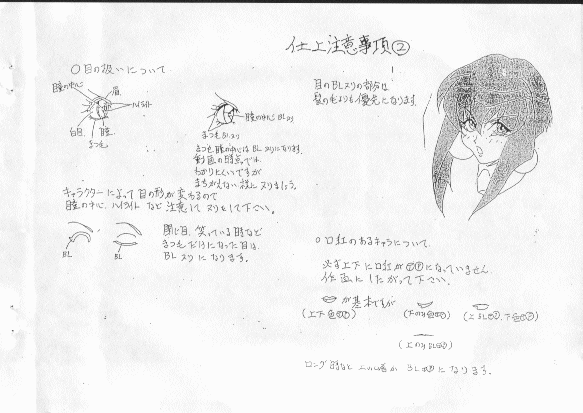 仕上注意事項②
○目の扱いについて
瞳の中心
眉
ハイライト
白目
瞳
まつ毛
瞳の中心 BLヌリ
まつ毛 BLヌリ
まつ毛、瞳の中心は BLヌリになります。
動画の時点では
わかりにくいですが
まちがえない様にヌリましょう。
キャラクターによって目の形が変わるので
瞳の中心、ハイライトなど注意してヌリをして下さい。
BL
BL
閉じ目、笑っている時など
まつ毛だけになった目は、
BLヌリになります。
目のBLヌリの部分は
髪の毛よりも優先になります。
○口紅のあるキャラについて
必ず上下に口紅が
になっていません。
作画にしたがって下さい。
が基本ですが
(上下色
(下のみ色
(上BL
下色
(上のみBL
ロング
になります。